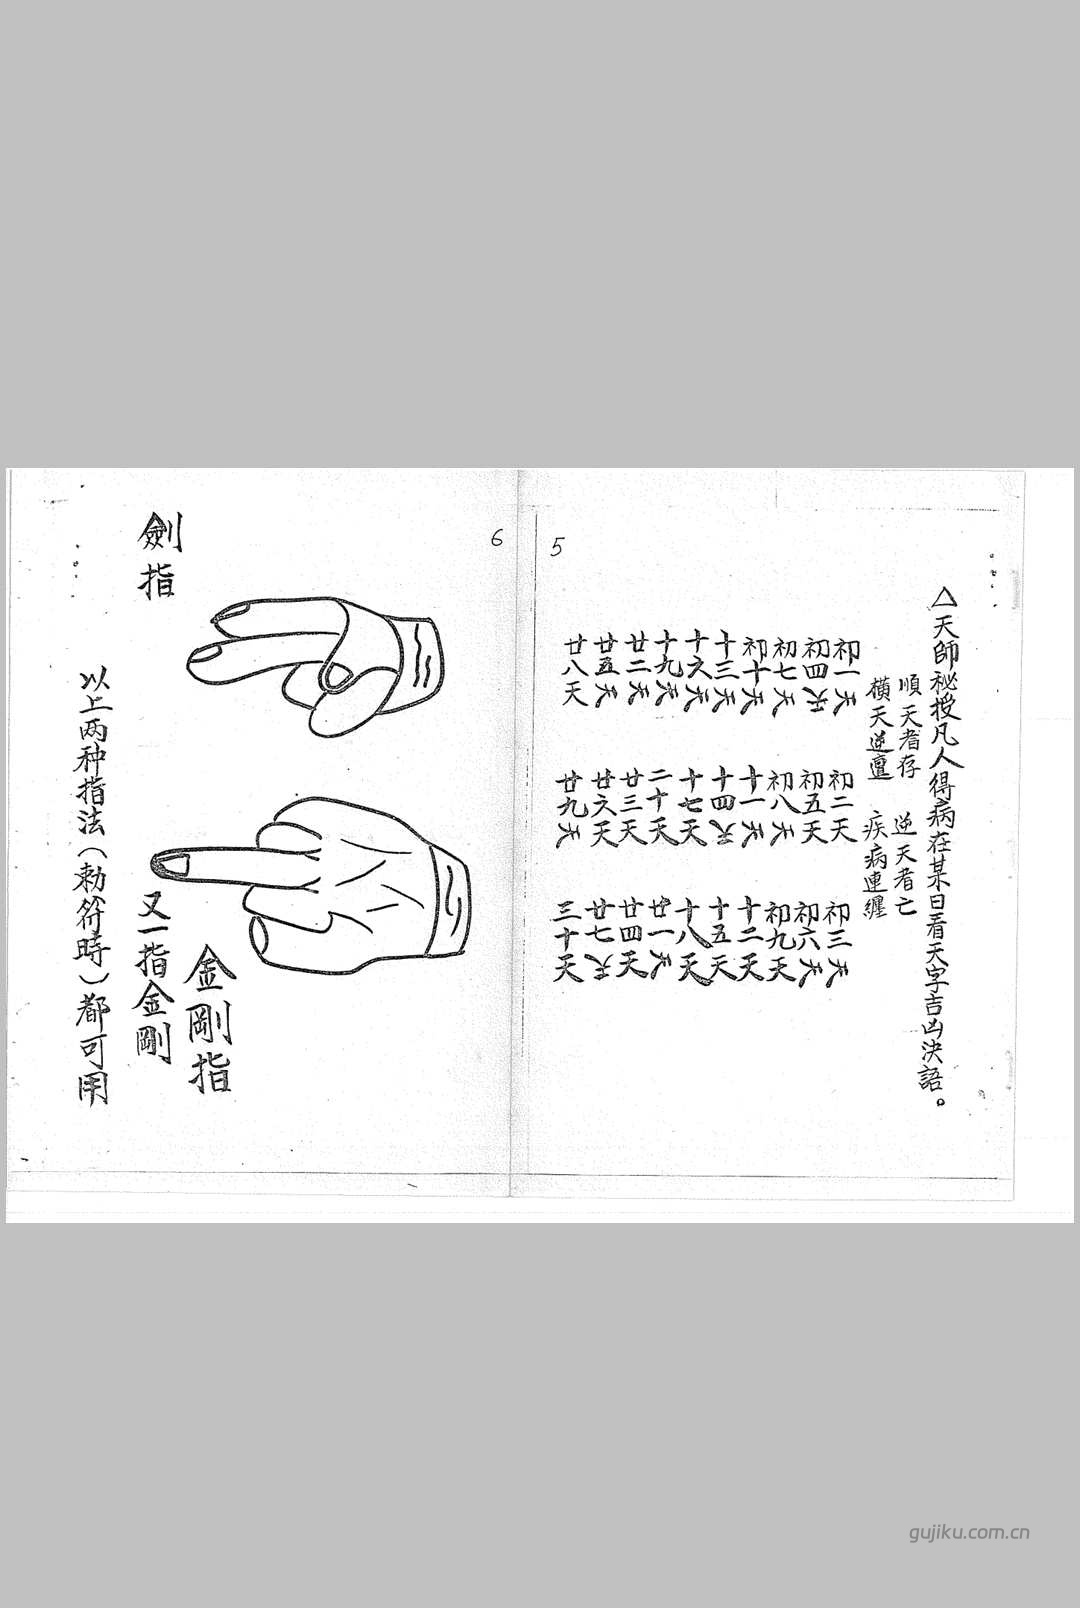 5
△天師祕授凡人得病在某日看天字吉凶決語。
順天者存 逆天者亡
橫天逆亶 疾病連纏
初一天 初二天 初三天
初四天 初五天 初六天
初七天 初八天 初九天
初十天 十一天 十二天
十三天 十四天 十五天
十六天 十七天 十八天
十九天 二十天 廿一天
廿二天 廿三天 廿四天
廿五天 廿六天 廿七天
廿八天 廿九天 三十天
6
金剛指
又一指金剛
劍指
以上两种指法(勅符時)都可用
gujiku.com.cn